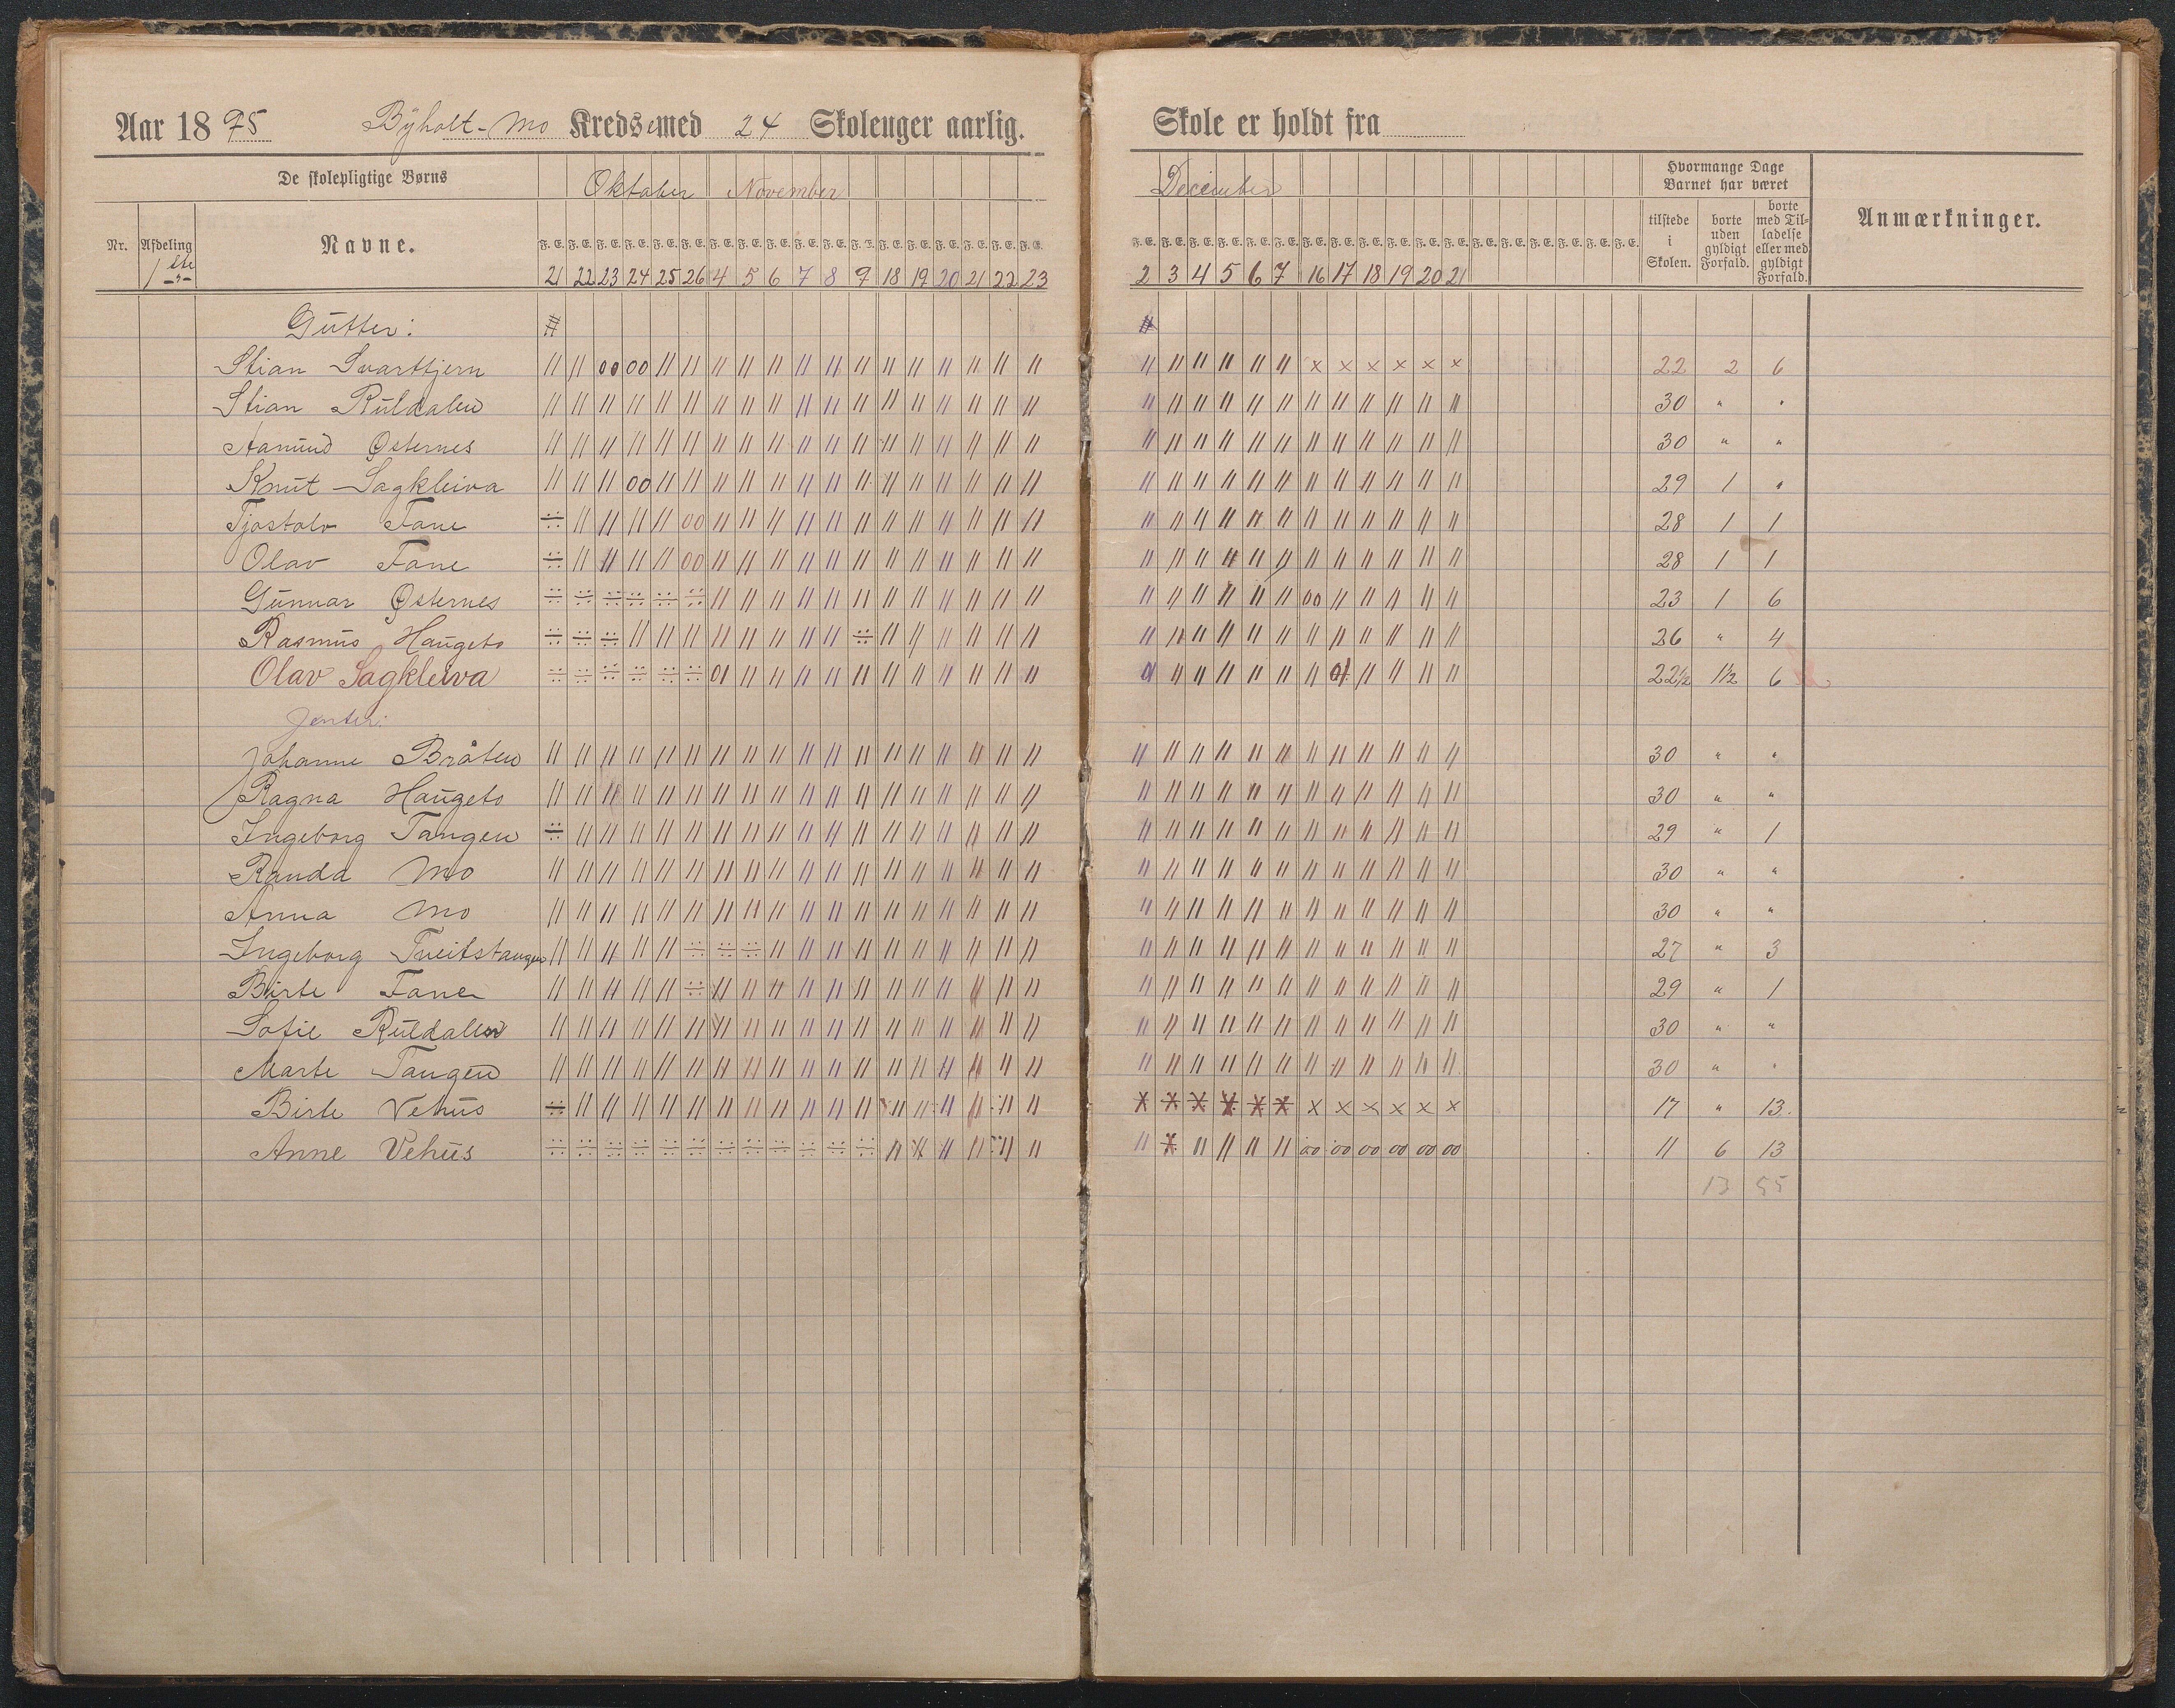 Aar 1895 Byholt-Mo Kreds med 24 Skoleuger aarlig. Skole er holdt fra
De skolepligtige Børns Oktober November December Hvormange Dage Barnet har været Anmærkninger.
Nr. Afdeling 1ste Navne. tilstede i Skolen. borte uden gyldigt Forfald. borte med Tilladelse eller med gyldigt Forfald.
F. E. F. E. F. E. F. E. F. E. F. E. F. E. F. E. F. E. F. E. F. E. F. E. F. E. F. E. F. E. F. E. F. E. F. E. F. E. F. E. F. E. F. E. F. E. F. E. F. E. F. E. F. E. F. E. F. E. F. E. F. E. F. E. F. E. F. E. F. E. F. E.
21 22 23 24 25 26 4 5 6 7 8 9 18 19 20 21 22 23 2 3 4 5 6 7 16 17 18 19 20 21
Gutter:
Stian Svarttjern 22 2 6
Stian Ruldalen 30 " "
Aamund Østernes 30 " "
Knut Sagkleiva 29 1 "
Tjostolv Fane 28 1 1
Olav Fane 28 1 1
Gunnar Østernes 23 1 6
Rasmus Haugeto 26 " 4
Olav Sagkleiva 22½ 1½ 6
Jenter:
Johanne Bråten 30 " "
Ragna Haugeto 30 " "
Ingeborg Tangen 29 " 1
Randa Mo 30 " "
Anna Mo 30 " "
Ingeborg Tveitstangen 27 " 3
Birte Fane 29 " 1
Sofie Ruldalen 30 " "
Marte Tangen 30 " "
Birte Vehus 17 " 13.
Anne Vehus 11 6 13
13 55